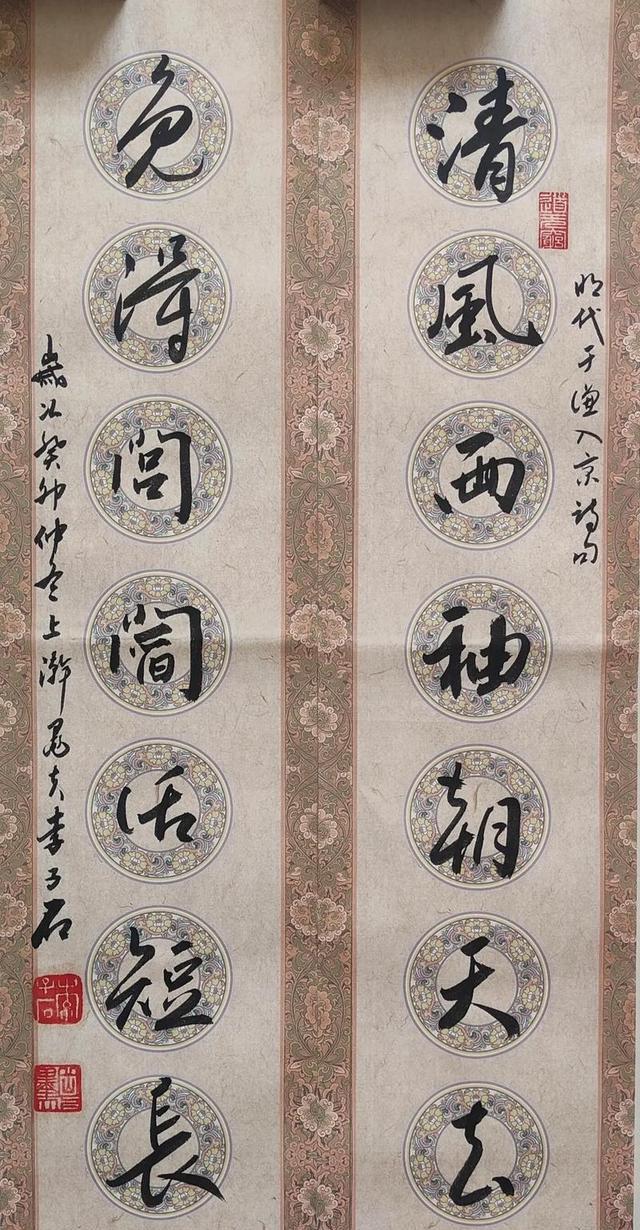 明代于謙入京詩句
清風两袖朝天去
免得閭閻話短長
歲次癸卯仲冬上澣李子石
李子石